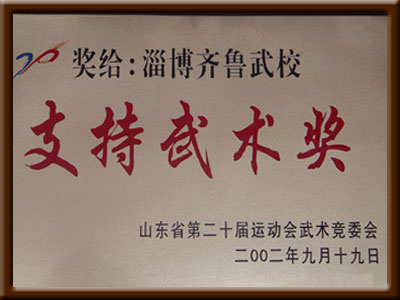 奖给:淄博齐鲁武校
支持武术奖
山东省第二十届运动会武术竞委会
二00二年九月十九日